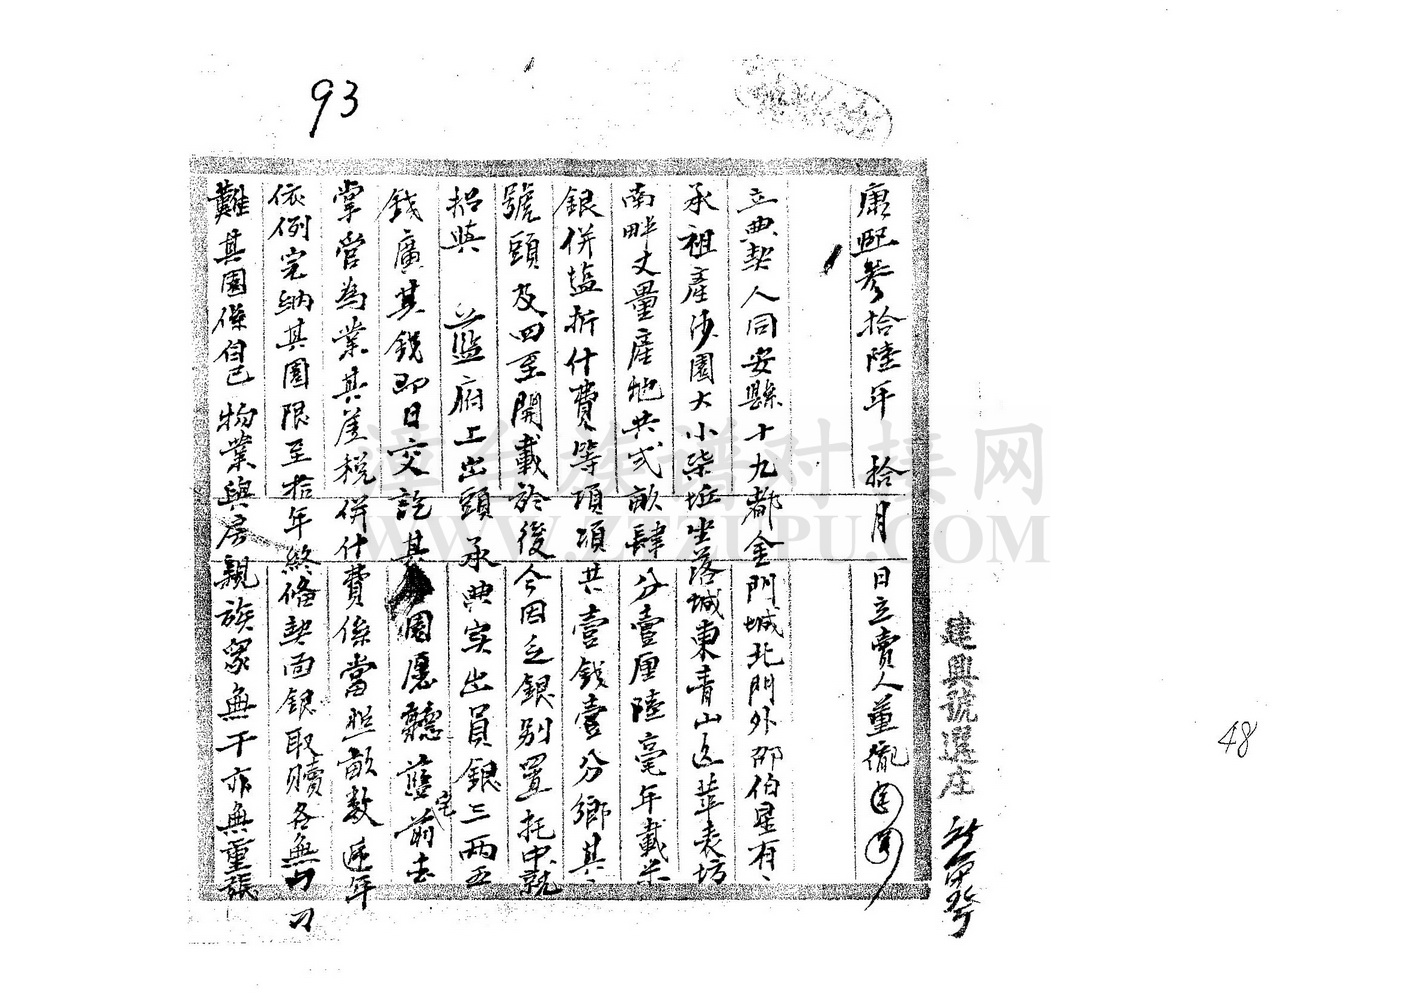 93
康熙參拾陸年 拾月 日立賣人董
立典契人同安縣十九都金門城北門外邵伯星有
承祖產沙園大小柒坵坐落城東青山 華表坊
南畔丈量產地共弍畝肆分壹厘陸毫年載米
銀併塩折什費等項項共壹錢壹分鄉其
號頭及四至開載於後今因乏銀別置托中就
招與 藍府上出頭承典实出員銀三兩五
錢廣其錢即日交訖其園愿聽藍宅前去
掌管為業其產稅併什費係當照畝数逐年
依例完納其園限至拾年終俻契面銀取贖各無
難其園係自己物業與房親族眾無干亦無重張
建興號選庄
48
漳台族谱对接网
WWW.ZTZUPU.COM